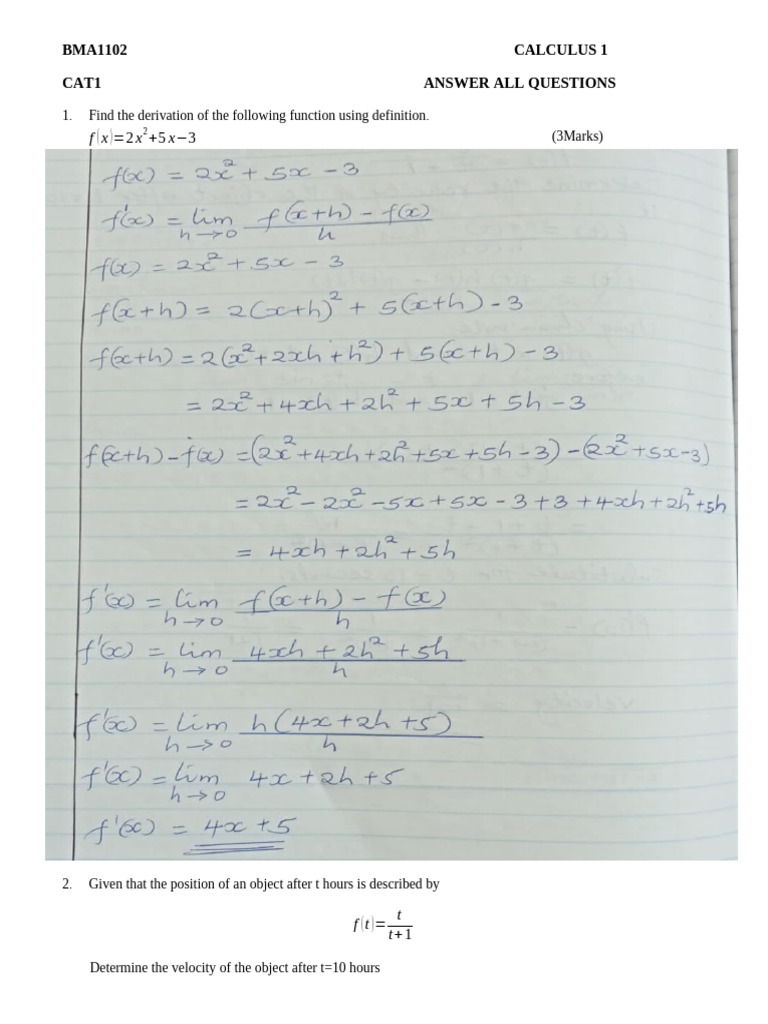 BMA1102 CALCULUS 1
CAT1 ANSWER ALL QUESTIONS
1. Find the derivation of the following function using definition.
f(x)=2x²+5x−3 (3Marks)
f(x) = 2x² + 5x - 3
f'(x) = lim h→0 f(x+h) - f(x) / h
f(x) = 2x² + 5x - 3
f(x+h) = 2(x+h)² + 5(x+h) - 3
f(x+h) = 2(x²+2xh+h²) + 5(x+h) - 3
= 2x² + 4xh + 2h² + 5x + 5h - 3
f(x+h) - f(x) = (2x²+4xh+2h²+5x+5h-3) - (2x²+5x-3)
= 2x² - 2x² - 5x + 5x - 3 + 3 + 4xh + 2h² + 5h
= 4xh + 2h² + 5h
f'(x) = lim h→0 f(x+h) - f(x) / h
f'(x) = lim h→0 4xh + 2h² + 5h / h
f'(x) = lim h→0 h(4x+2h+5) / h
f'(x) = lim h→0 4x + 2h + 5
f'(x) = 4x + 5
2. Given that the position of an object after t hours is described by
f(t)= t / t+1
Determine the velocity of the object after t=10 hours